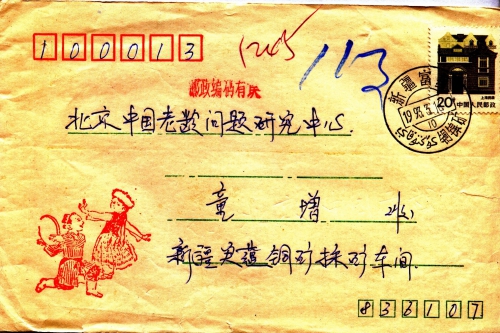 100013
1245
113
邮政编码有误
20分 中国人民邮政
新疆富
1993.5.1
10
北京中国老龄问题研究中心
童 增 收
新疆富蕴铜矿採矿车间
836107